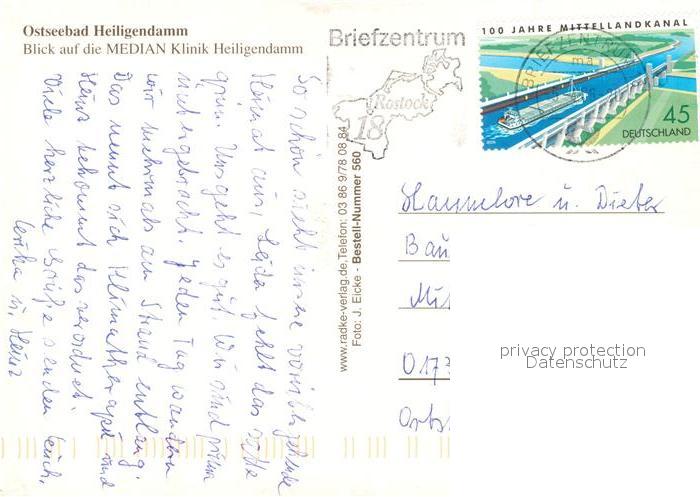 Ostseebad Heiligendamm
Blick auf die MEDIAN Klinik Heiligendamm
So schön sieht unsere vorübergehende
Heimat aus, Leider fehlt das satte
grün. Uns geht es gut. Wir sind prima
untergebracht. Jeden Tag wandern
wir mehrmals am Strand entlang.
Das nennt sich Klimatherapie und
Heinz bekommt das verordnet.
Viele herzliche Grüße senden Euch,
u. Heinz
www.radke-verlag.de, Telefon: 03 86 9/78 08 84
Foto: J. Eicke - Bestell-Nummer 560
Briefzentrum
Rostock
18
100 JAHRE MITTELLANDKANAL
BRIEFZENTRUM
45
DEUTSCHLAND
Hannelore u. Dieter
Bau
Mi
017
Orts
privacy protection
Datenschutz